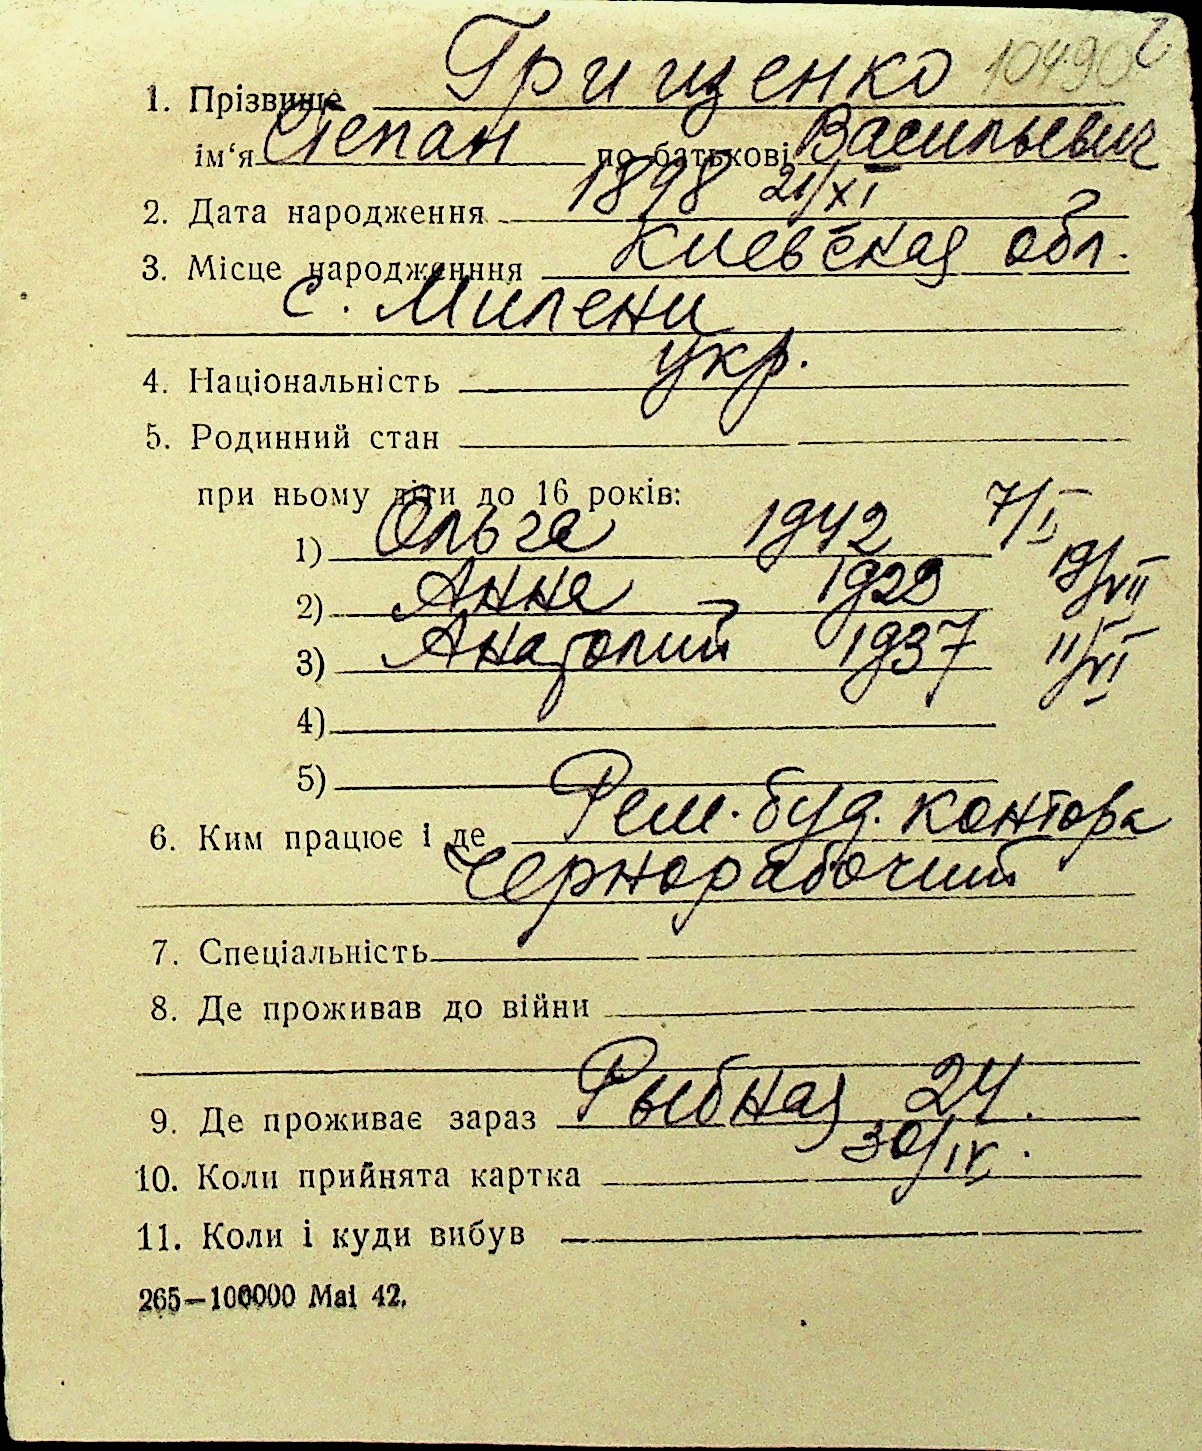 10490
1. Прізвище Грищенко
ім‘я Степан по батькові Васильевич
2. Дата народження 1898 21/XI
3. Місце народженння Киевская обл.
с. Милени
4. Національність укр.
5. Родинний стан
при ньому діти до 16 років:
1) Ольга 1942 7/I
2) Анна 1929 19/VII
3) Анатолий 1937 11/VI
4)
5)
6. Ким працює і де Рем. буд. контора
Чернорабочий
7. Спеціальність
8. Де проживав до війни
9. Де проживає зараз Рыбная 24.
10. Коли прийнята картка 30/IV.
11. Коли і куди вибув
265—100000 Mai 42.